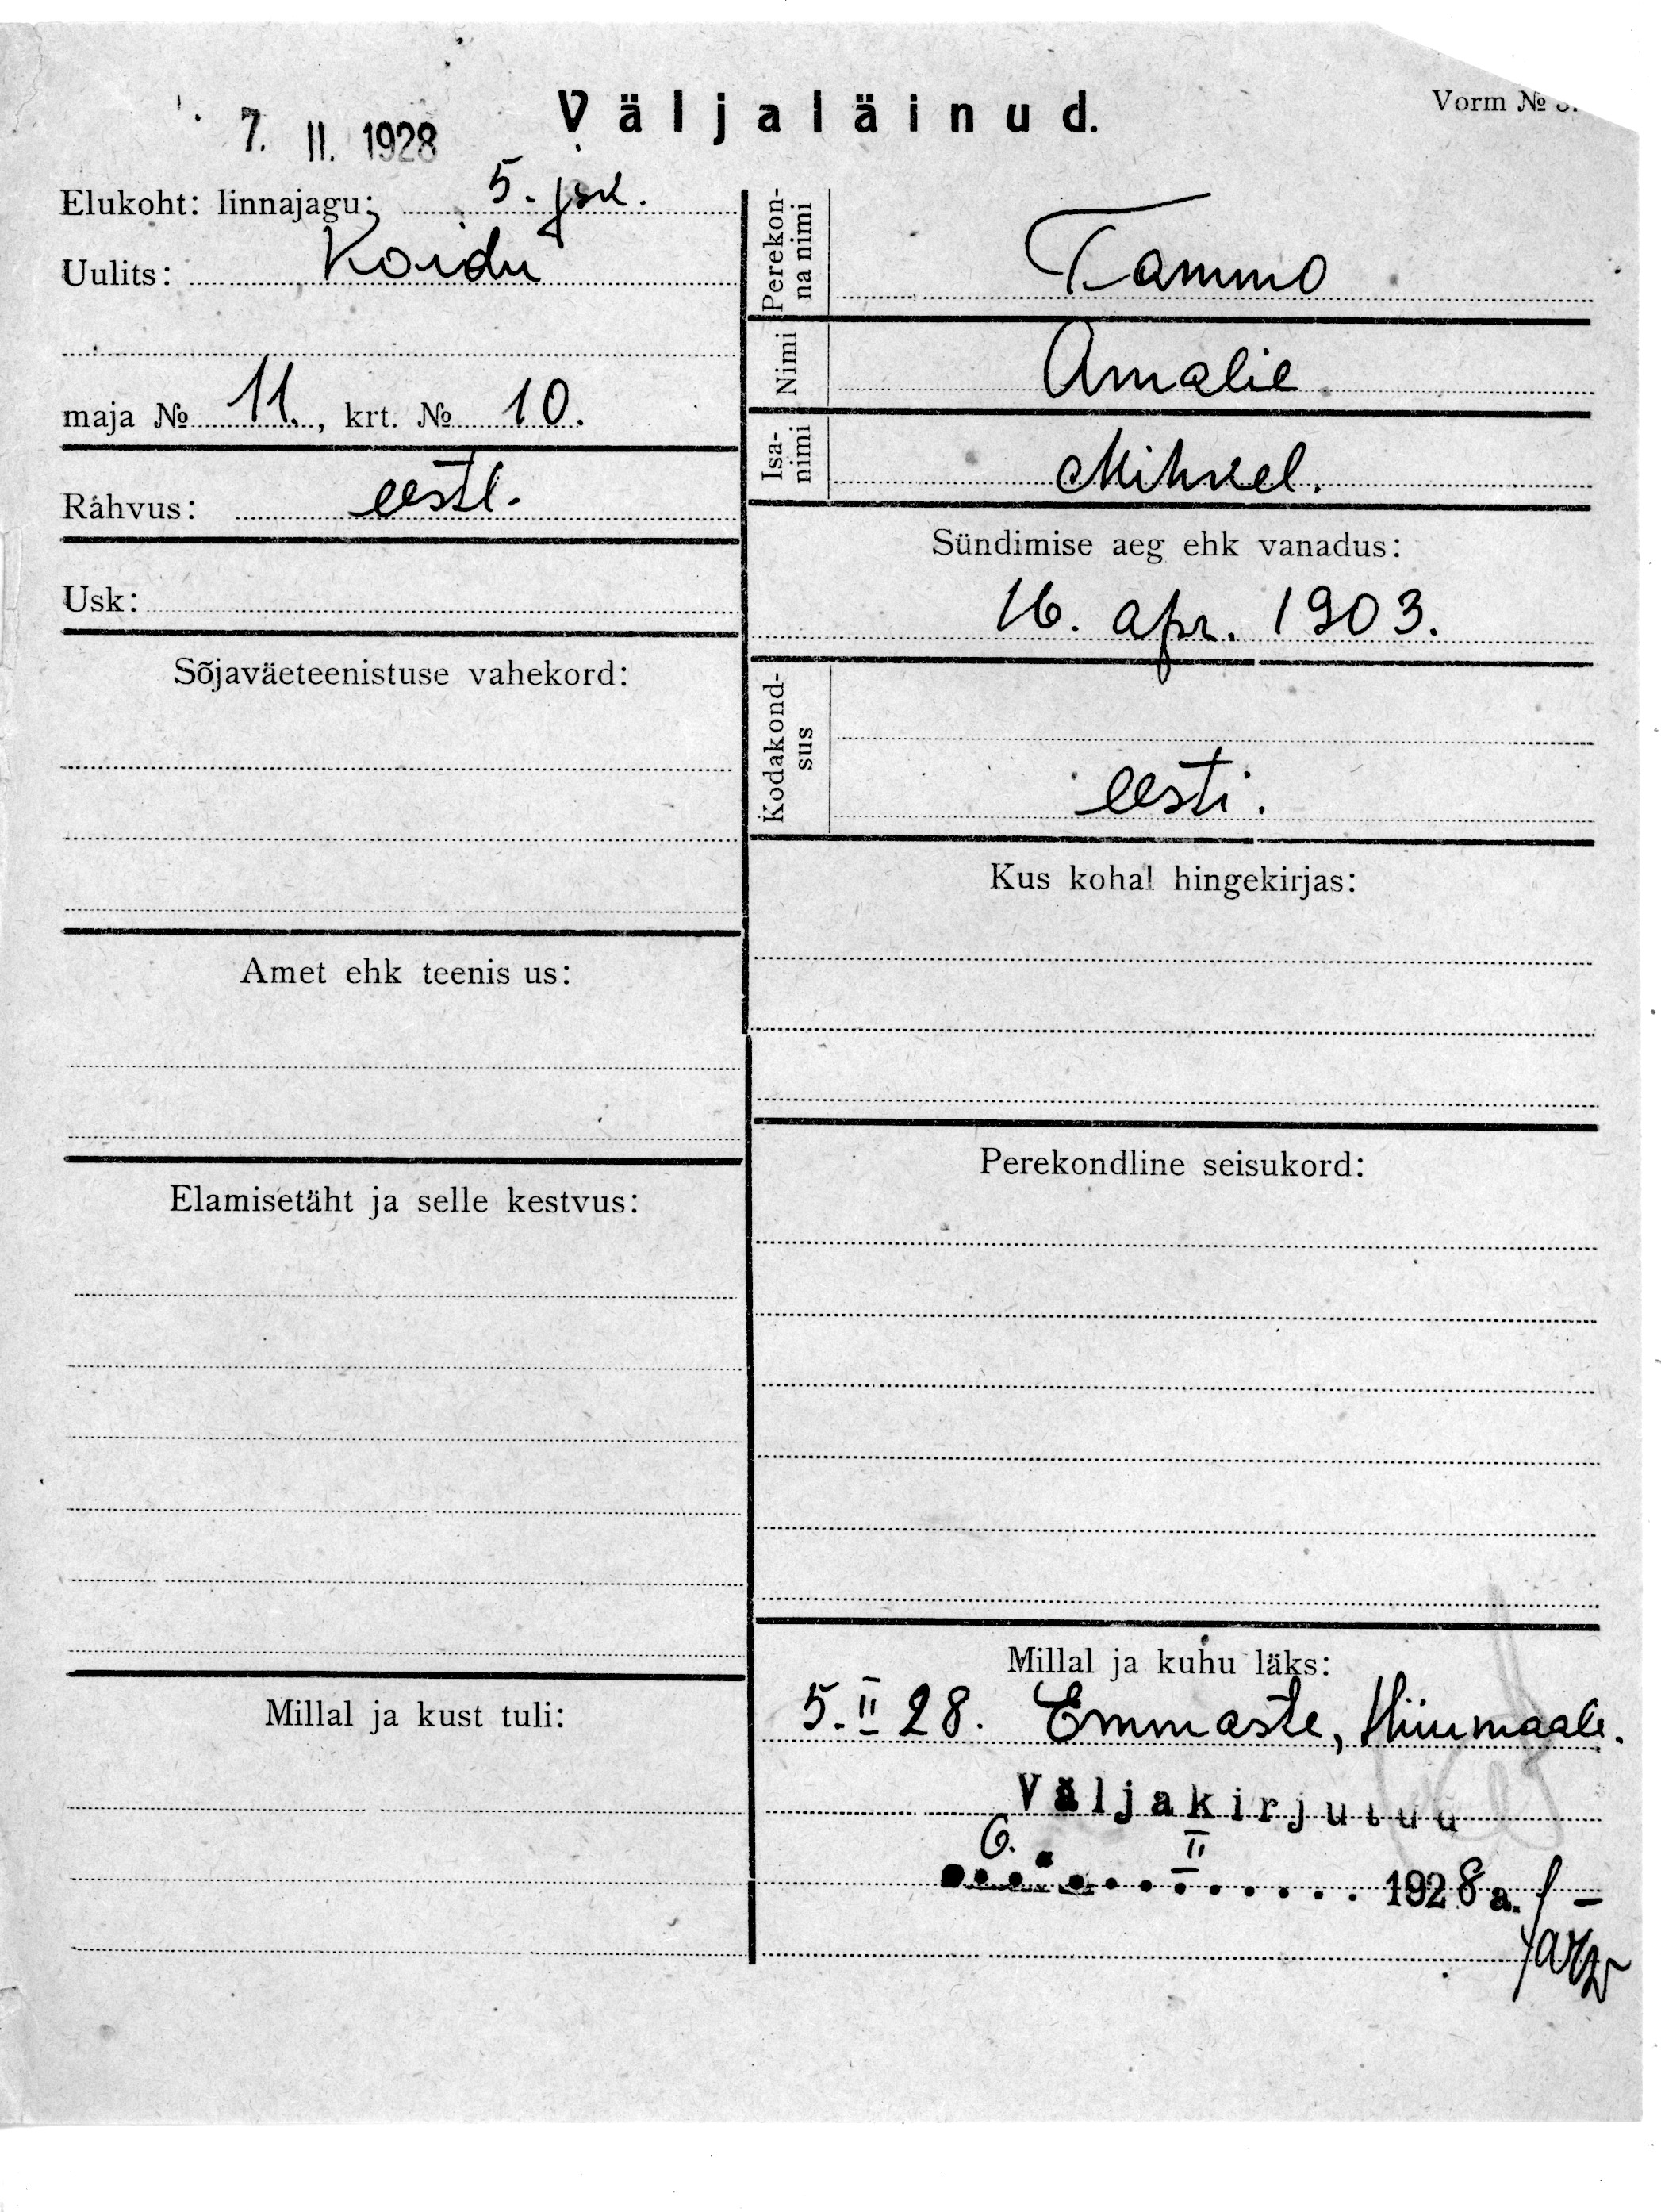 Väljaläinud.
Vorm №
7. II. 1928
Elukoht: linnajagu: 5. jsk.
Uulits: Koidu
maja № 11., krt. № 10.
Rahvus: eestl.
Usk:
Sõjaväeteenistuse vahekord:
Amet ehk teenis us:
Elamisetäht ja selle kestvus:
Millal ja kust tuli:
Perekon-
na nimi
Tammo
Nimi
Amalie
Isa-
nimi
Mihkel.
Sündimise aeg ehk vanadus:
16. apr. 1903.
Kodakond-
sus
eesti.
Kus kohal hingekirjas:
Perekondline seisukord:
Millal ja kuhu läks:
5. II 28. Emmaste, Hiiumaale.
Väljakirjutud
6. II 1928 a.